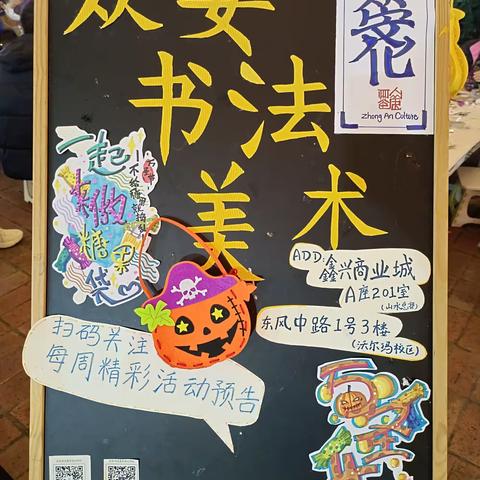 众安
书法
美术
安化
Zhong An Culture
一起
来做
糖果
袋
不给糖果就捣乱
ADD:鑫兴商业城
A座201室
东风中路1号3楼
(沃尔玛校区)
扫码关注
每周精彩活动预告